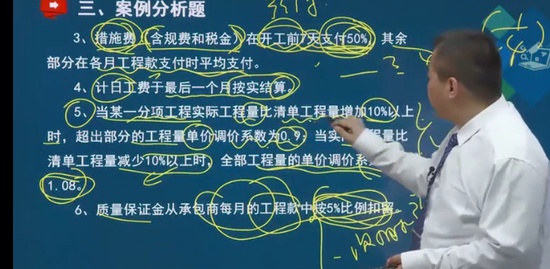 三、案例分析题
3、措施费（含规费和税金）在开工前7天支付50%，其余
部分在各月工程款支付时平均支付。
4、计日工费于最后一个月按实结算。
5、当某一分项工程实际工程量比清单工程量增加10%以上
时，超出部分的工程量单价调价系数为0.9；当实 工程量比
清单工程量减少10%以上时，全部工程量的单价调价系
1.08。
6、质量保证金从承包商每月的工程款中按5%比例扣留。